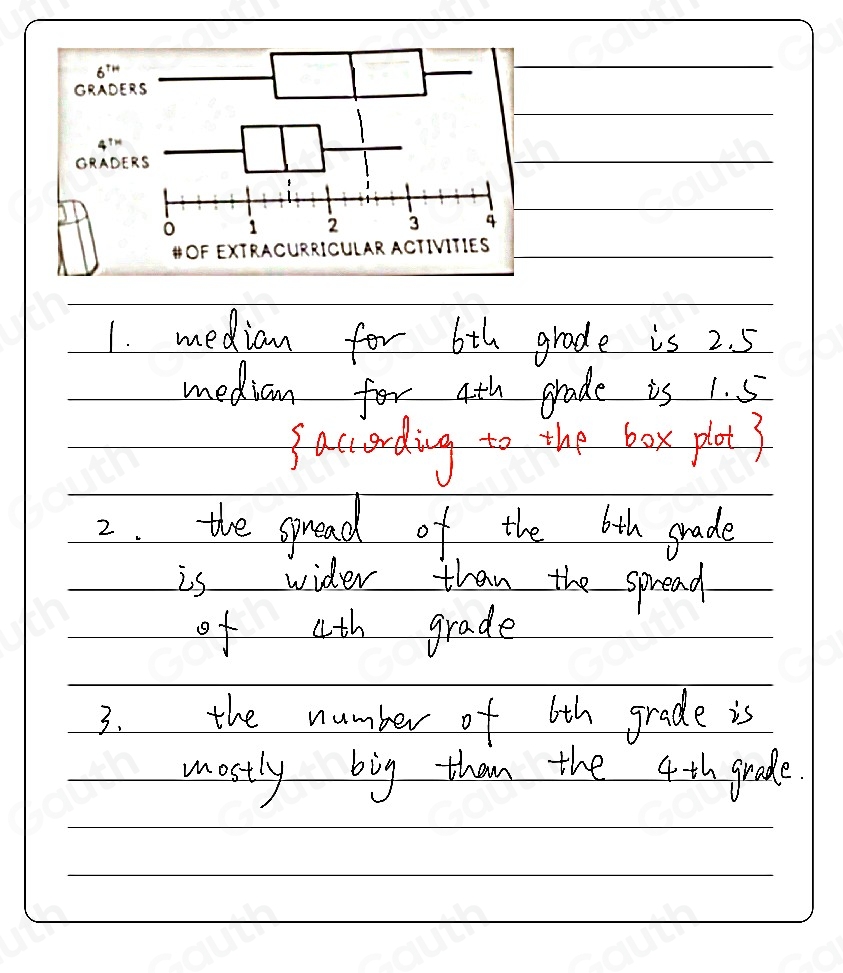 6TH
GRADERS
4TH
GRADERS
0 1 2 3 4
# OF EXTRACURRICULAR ACTIVITIES
1. median for 6th grade is 2.5
median for 4th grade is 1.5
{according to the box plot}
2. the spread of the 6th grade
is wider than the spread
of 4th grade
3. the number of 6th grade is
mostly big than the 4th grade.
Gauth